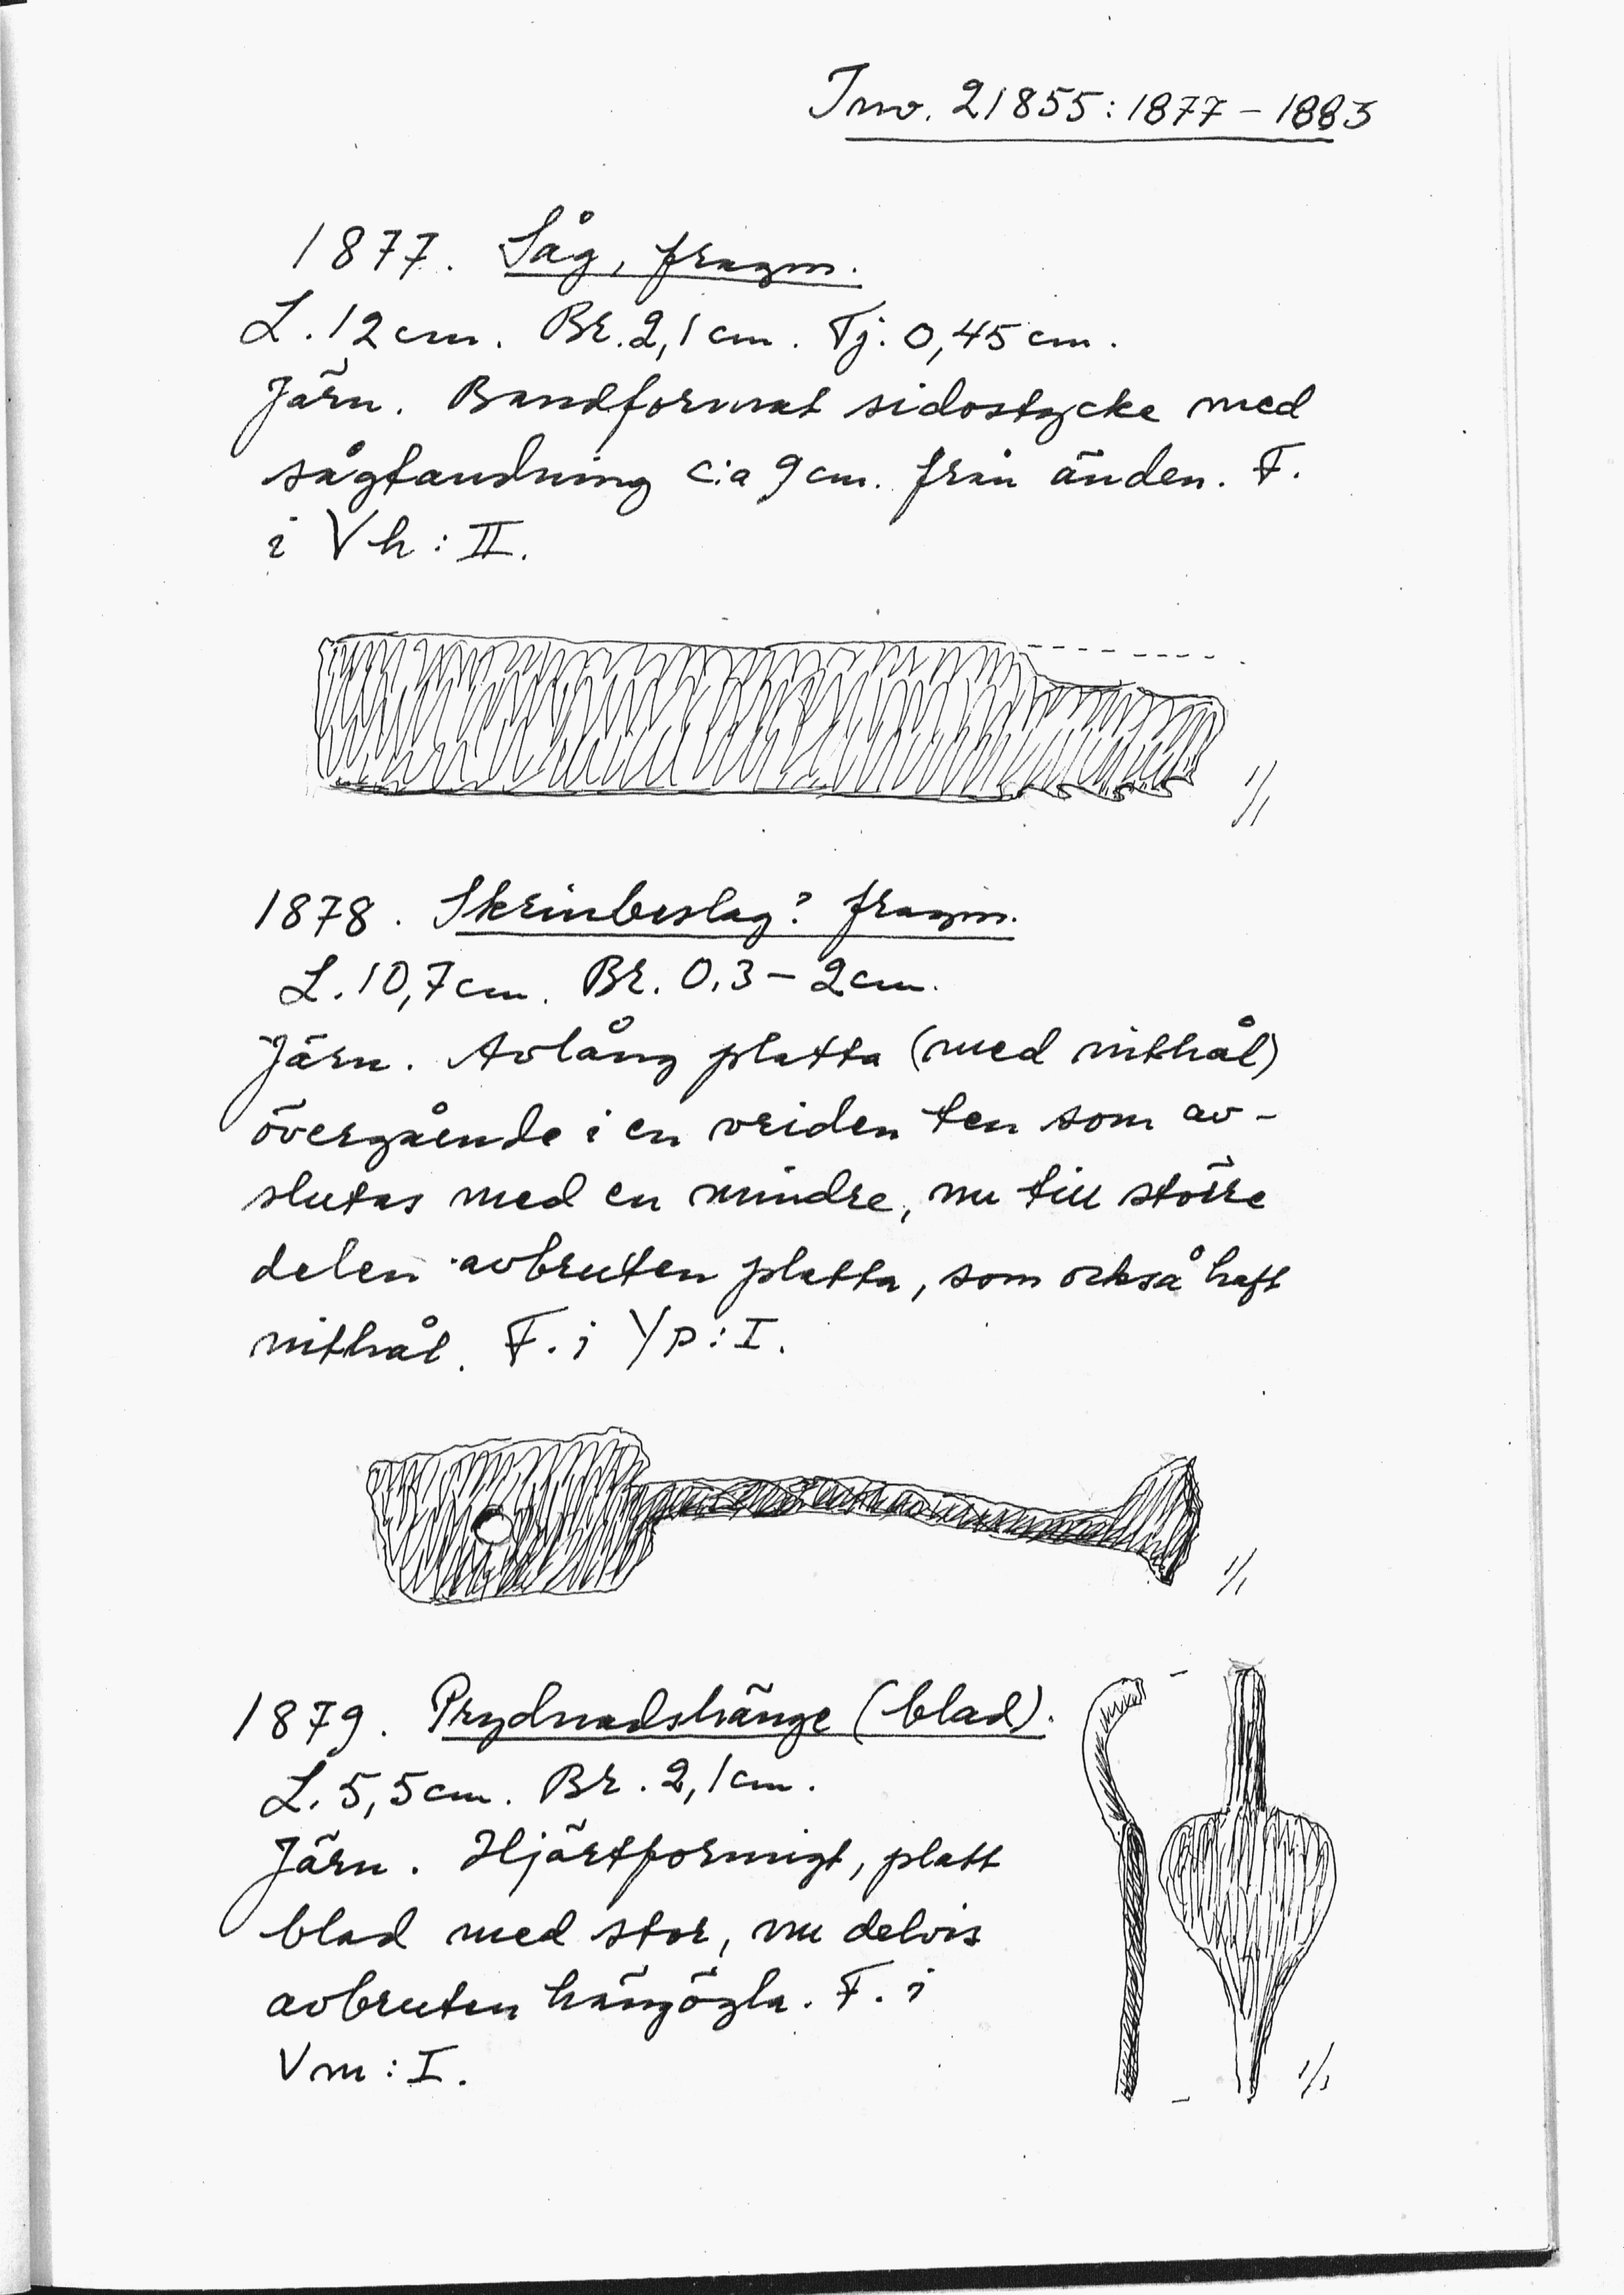 Inv. 21855:1877-1883
1877. Såg, fragm.
L. 12 cm. Br. 2,1 cm. Tj. 0,45 cm.
Järn. Bandformat sidostycke med
sågtandning c:a 9 cm. från änden. F.
i Vh:II.
1/1
1878. Skrinbeslag? fragm.
L. 10,7 cm. Br. 0,3-2 cm.
Järn. Avlång platta (med nithål)
övergående i en vriden ten som av-
slutas med en mindre, nu till större
delen avbruten platta, som också haft
nithål. F. i Yp:I.
1/1
1879. Prydnadshänge (blad).
L. 5,5 cm. Br. 2,1 cm.
Järn. Hjärtformigt, platt
blad med stor, nu delvis
avbruten hängögla. F. i
Vm:I.
1/1